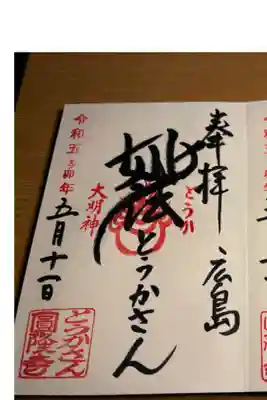 奉拝、広島
妙法とうかさん
大明神
令和五 卯年
五月十一日
とうかさん
圓隆寺